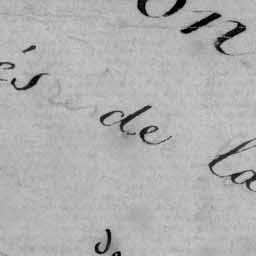 on
és de la